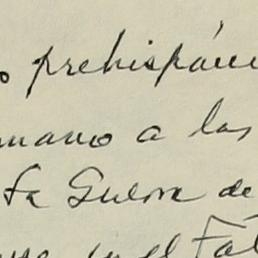 o prehispáni
mano a las
ta Guerra de
en el Tal